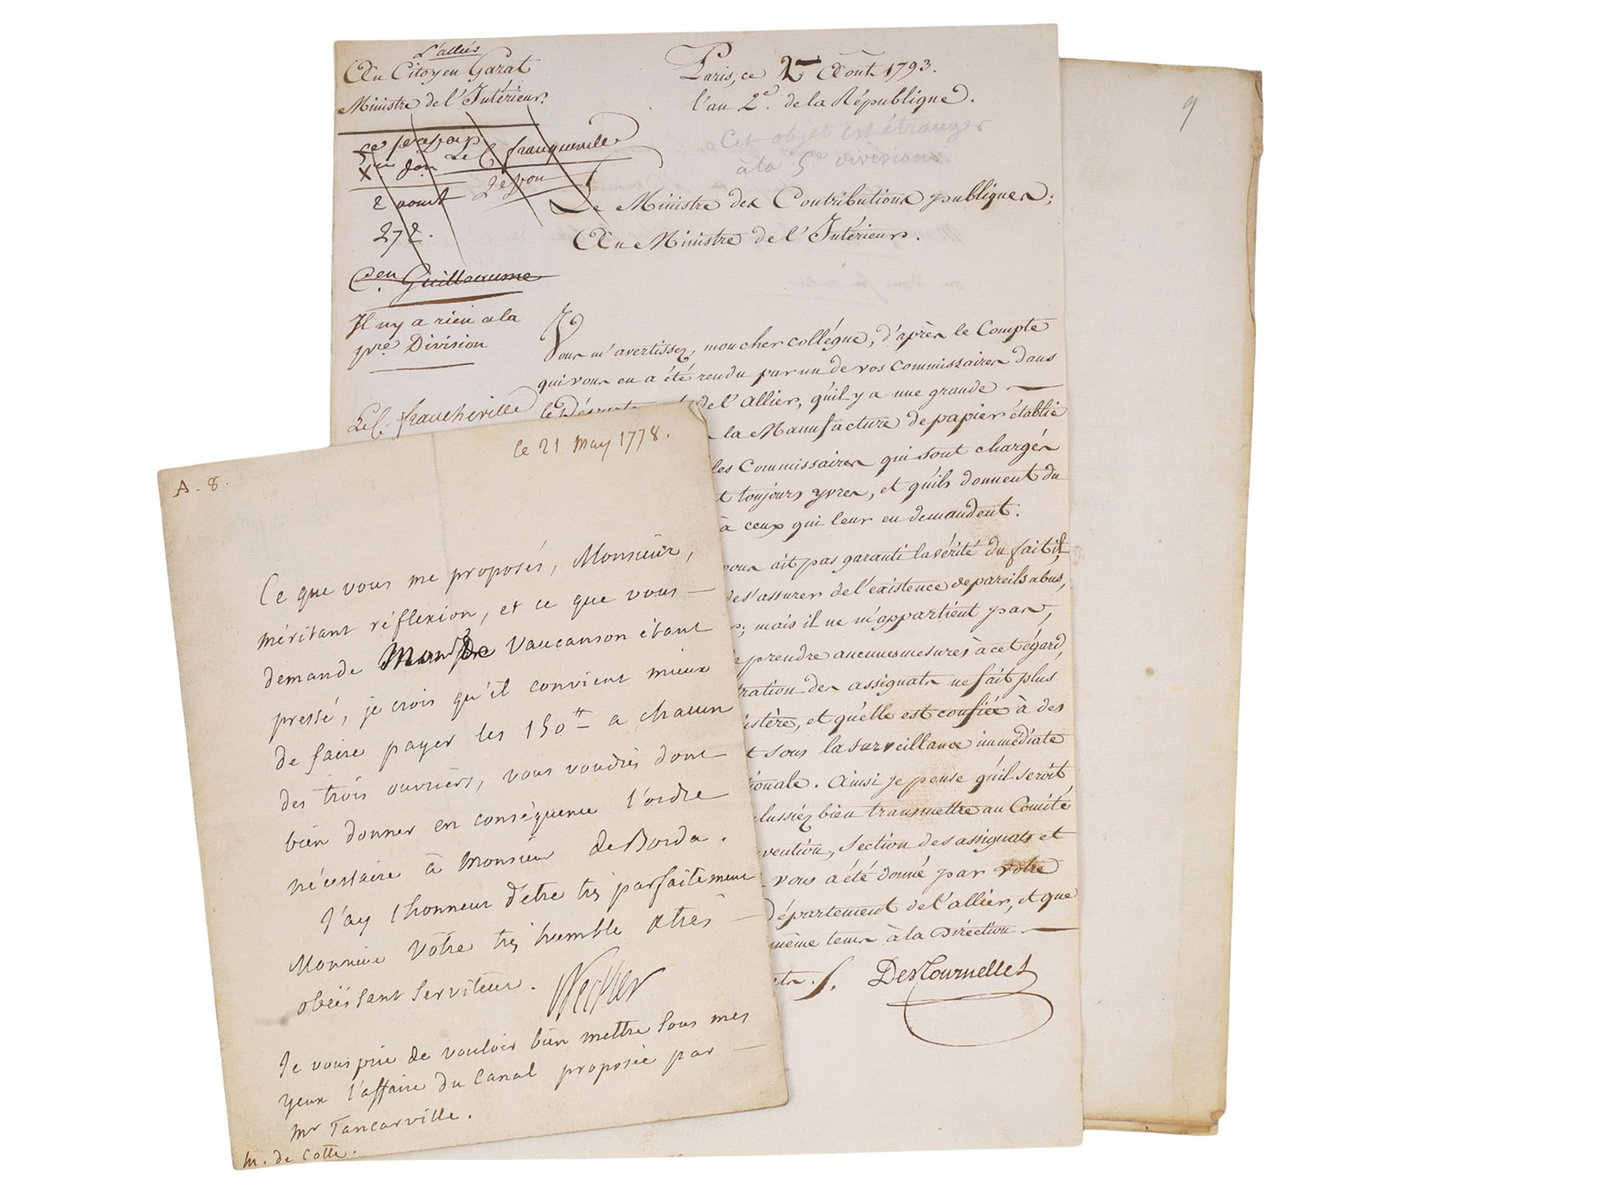 L'allier
Au Citoyen Garat
Ministre de l'Intérieur.
Le C. franqueville
2 aout
272.
Cen. Guillaume
Il ny a rien a la
pre. Division
Le C. francheville
Paris, ce 2 Aout 1793.
l'an 2e. de la République.
Cet objet est étranger
à la 5e division
Le Ministre des Contributions publiques;
Au Ministre de l'Intérieur.
Vous m'avertissez, mon cher collégue, d'après le Compte
qui vous en a été rendu par un de vos Commissaires dans
le Département de l'Allier, qu'il y a une grande
la Manufacture de papier établie
les Commissaires qui sont chargés
t toujours yvres, et qu'ils donnent du
à ceux qui leur en demandent.
vous ait pas garanti la vérité du fait, il
de s'assurer de l'existence de pareils abus,
; mais il ne m'appartient pas,
prendre aucunes mesures à cet égard,
tration des assignats ne fait plus
istère, et qu'elle est confiée à des
t sous la surveillance immédiate
ionale. Ainsi je pense qu'il seroit
lussiez bien transmettre au Comité
vention, Section des assignats et
vous a été donné par votre
Département de l'allier, et que
même tems à la Direction
Destournelles
9
A. 8.
le 21 May 1778.
Ce que vous me proposés, Monsieur,
méritant réflexion, et ce que vous
demande Mr De Vaucanson étant
pressé, je crois qu'il convient mieux
de faire payer les 150 tt a chacun
des trois ouvriers, vous voudrés donc
bien donner en conséquence l'ordre
nécessaire à Monsieur de Borda.
J'ay l'honneur d'etre très parfaitement
Monsieur Votre très humble & très
obéissant Serviteur.
Necker
Je vous prie de vouloir bien mettre sous mes
yeux l'affaire du Canal proposée par
Mr Tancarville.
M. de Cotte.